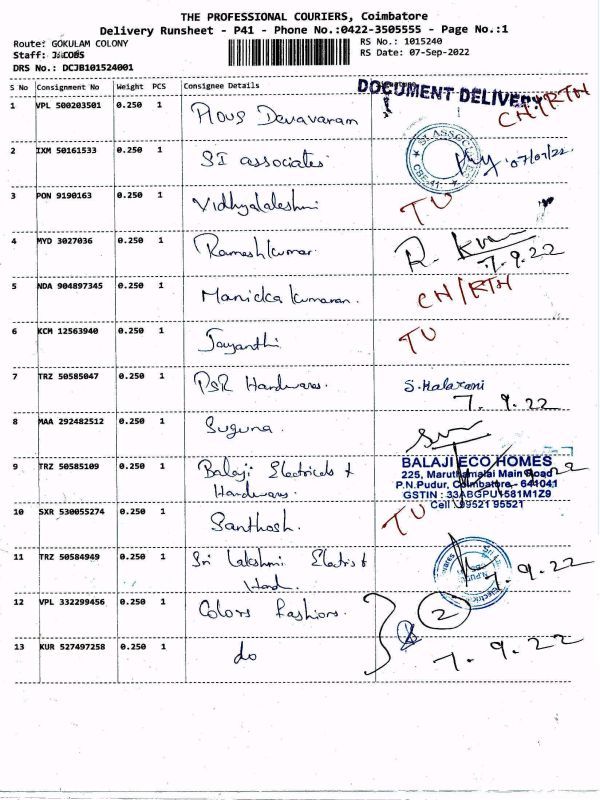 THE PROFESSIONAL COURIERS, Coimbatore
Delivery Runsheet - P41 - Phone No.:0422-3505555 - Page No.:1
Route: GOKULAM COLONY
RS No.: 1015240
Staff: JACOBS
RS Date: 07-Sep-2022
DRS No.: DCJB101524001
S No Consignment No Weight PCS Consignee Details
DOCUMENT DELIVERY
1 VPL 500203501 0.250 1 Pious Devavaram CH/RTH
2 IXM 50161533 0.250 1 SI associates 07/07/22
3 PON 9190163 0.250 1 Vidhyalakshmi TU
4 MYD 3027036 0.250 1 Ramesh Kumar. R. Kum
7.9.22
5 NDA 904897345 0.250 1 Manicka Kumaran. CH/RTH
6 KCM 12563940 0.250 1 Jayanthi TU
7 TRZ 50585047 0.250 1 PSR Hardwares. S. Malarani
7.9.22
8 MAA 292482512 0.250 1 Suguna.
9 TRZ 50585109 0.250 1 Balaji Electricals +
Hardwares.
BALAJI ECO HOMES
225, Maruthamalai Main Road
P.N.Pudur, Coimbatore- 641041
GSTIN : 33ABGPU1581M1Z9
Cell : 99521 95521
10 SXR 530055274 0.250 1 Santhosh. TU
11 TRZ 50584949 0.250 1 Sri Lakshmi Electris +
Hard.
7.9.22
12 VPL 332299456 0.250 1 Colors Fashions. 2
13 KUR 527497258 0.250 1 do 7.9.22